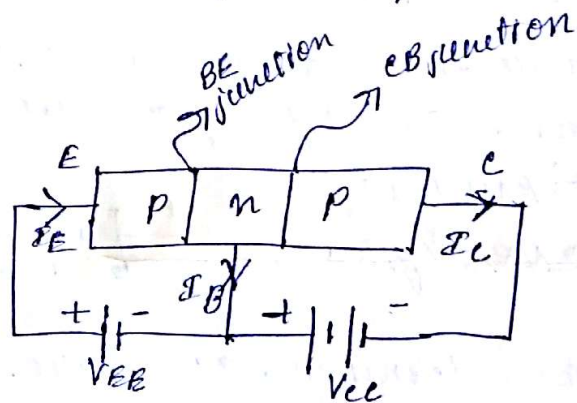 BE
junction
CB junction
E
P
n
P
C
I_E
I_B
I_C
+
-
+
-
V_EE
V_CC